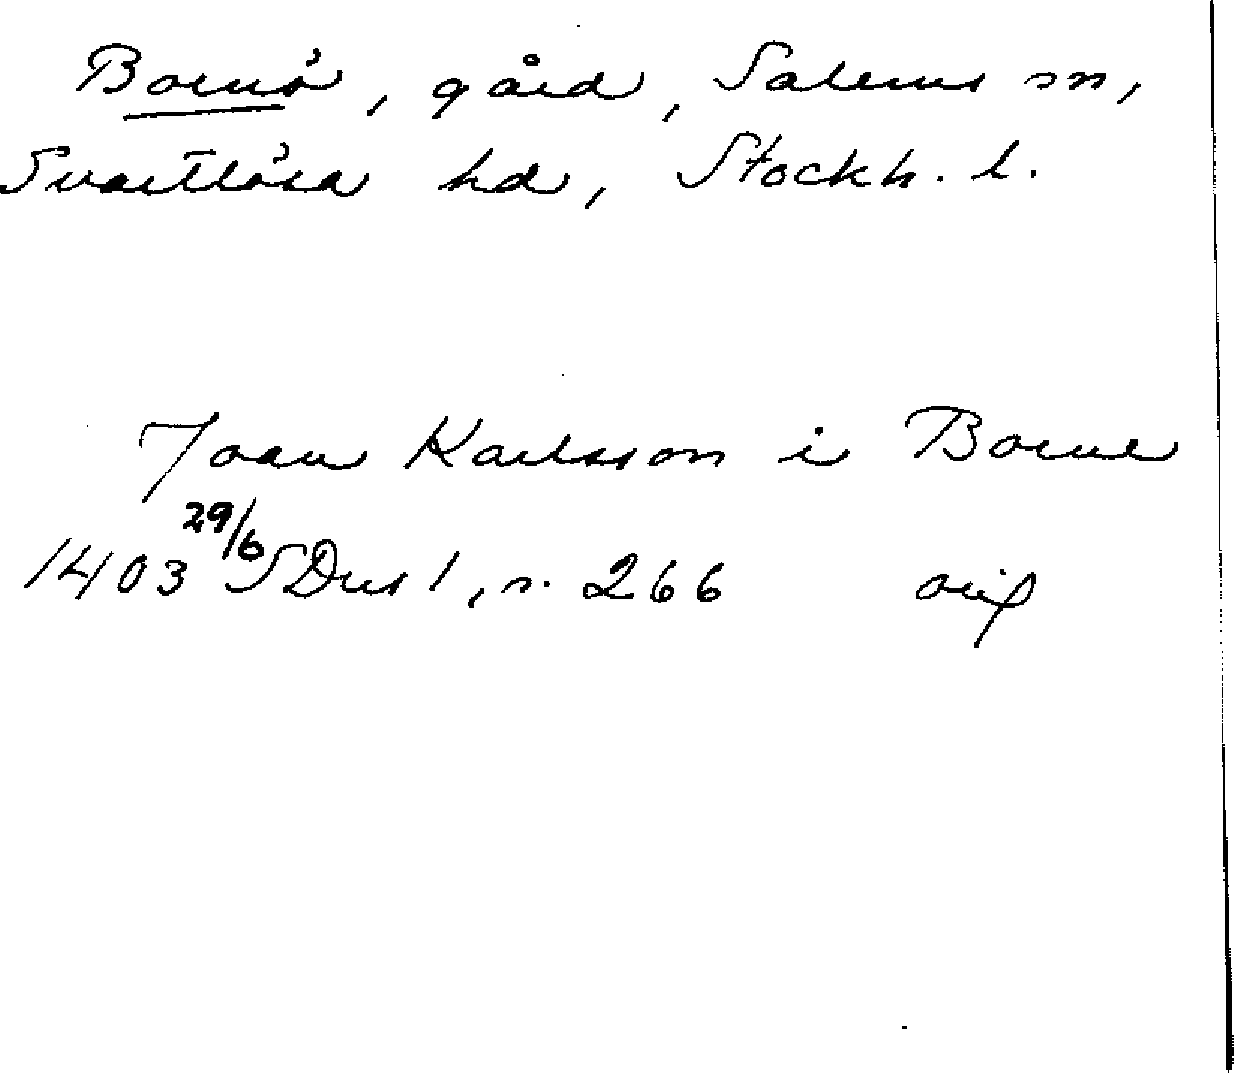 Bornö, gård, Salems sn,
Svartlösa hd, Stockh. l.
Joan Karlsson i Borne
1403 29/6 SDns 1, s. 266 orig